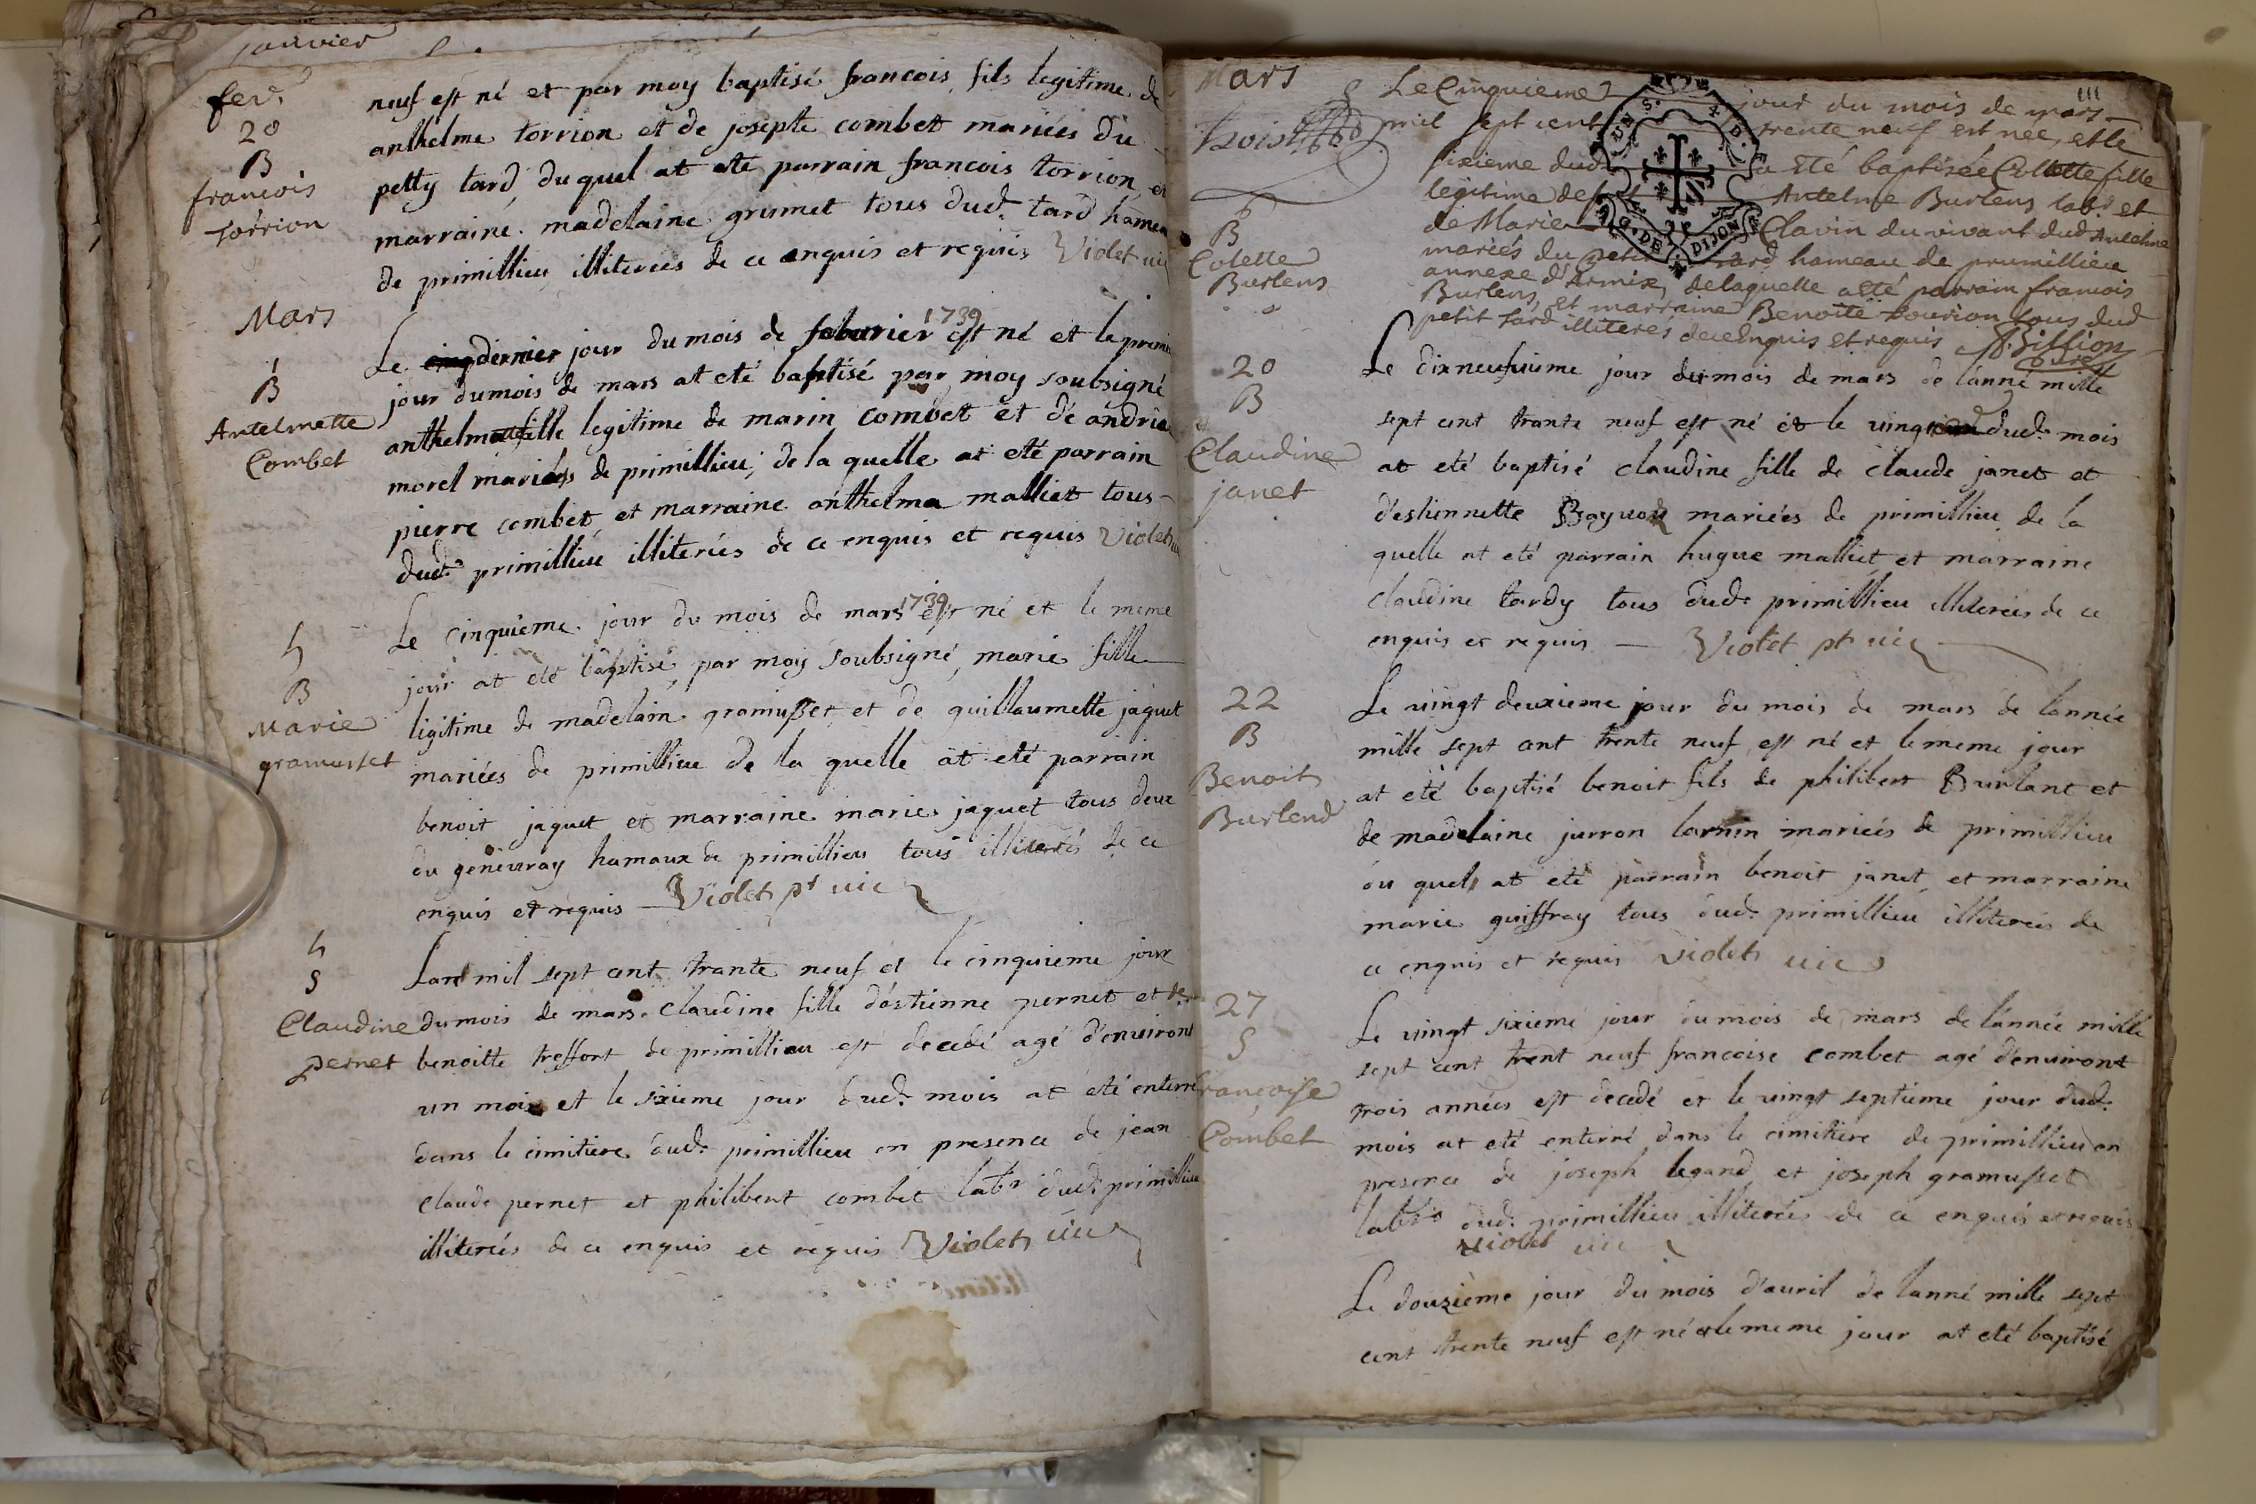 janvier
fevr
20
B
francois
torrion
neuf est né et par moy baptisé francois fils legitime de
anthelme torrion et de josepte combet mariées du
petty tard duquel at eté parrain francois torrion et
marraine madelaine grumet tous dud. tard hamea
de primillieu illiterées de ce enquis et requis Violet vic
Mars
1
B
Antelmette
Combet
1739
Le dernier jour du mois de feburier est né et le premie
jour du mois de mars at eté baptisé par moy soubsigné
anthelmette fille legitime de marin combet et de andria
morel mariées de primillieu, de la quelle at eté parrain
pierre combet et marraine anthelma malliet tous
dud. primillieu illiterées de ce enquis et requis Violet
5
B
Marie
gramusset
1739
Le cinquieme jour du mois de mars est né et le meme
jour at eté baptisé par moy soubsigné, marie fille
ligitime de madelain gramusset et de guillaumette jaquet
mariées de primillieu de la quelle at eté parrain
benoit jaquet et marraine marie jaquet tous deux
du genevray hamaux de primillieu tous illiterés de ce
enquis et requis Violet pt vic
5
S
Claudine
pernet
Lan mil sept cent trante neuf et le cinquieme jour
du mois de mars claudine fille d'estienne pernet et de
benoitte treffort de primillieu est decedé agé d'environt
un mois et le sixieme jour dud. mois at eté enterré
dans le cimitiere dud. primillieu en presence de jean
claude pernet et philibert combet labr dud. primillieu
illiterées de ce enquis et requis Violet vic
111
Mars
trois
6
B
Colette
Burlens
Le Cinquieme jour du mois de mars
mil sept cent trente neuf est née, et le
sixieme dud a eté baptisée Collette fille
legitime de Antelme Burlens labr et
de Marie Clavin du vivant dud Antelme
mariés du petit tard hameau de prumillieu
annexe d'Armix, delaquelle a eté parrain francois
Burlens, et marraine Benoite tourion tous dud
petit tard illiteres de ce enquis et requis
curé
UN S. X D.
G. DE DIJON
20
B
Claudine
janet
Le dixneufuieme jour du mois de mars de lanné mille
sept cent trante neuf est né et le vingt dud. mois
at eté baptisé claudine fille de claude janet et
d'estiennette Bayvou mariées de primillieu de la
quelle at eté parrain hugue malliet et marraine
claudine tardy tous dud. primillieu illiterées de ce
enquis et requis Violet pt vic
22
B
Benoit
Burlend
Le vingt deuxieme jour du mois de mars de lannée
mille sept cent trente neuf est né et le meme jour
at eté baptisé benoit fils de philibert Burlant et
de madelaine jurron mariées de primillieu
du quel at eté parrain benoit janet et marraine
marie guiffray tous dud. primillieu illiterées de
ce enquis et requis Violet vic
27
S
françoise
Combet
Le vingt sixieme jour du mois de mars de lannée mille
sept cent trent neuf francoise combet agé d'environt
trois années est decedé et le vingt septieme jour dud.
mois at eté enterré dans le cimitiere de primillieu en
presence de joseph legand et joseph gramusset
labrs dud. primillieu illiterées de ce enquis et requis
Violet vic
Le douzieme jour du mois d'auril de lanné mille sept
cent trente neuf est né et le meme jour at eté baptisé